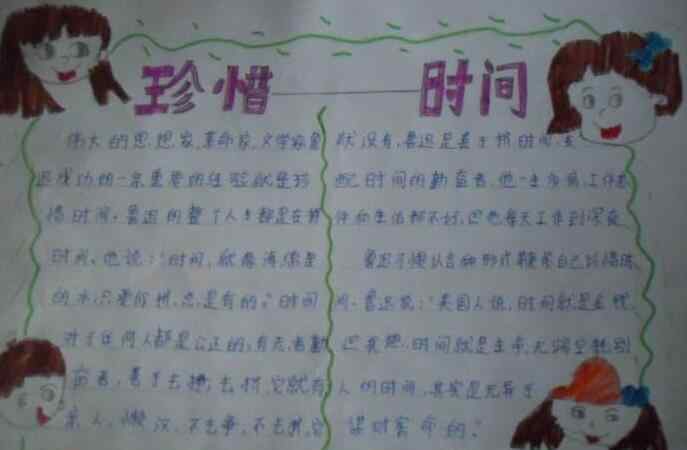 珍惜 时间
伟大的思想家,革命家,文学家鲁
迅成功的一条重要的经验就是珍
惜时间。鲁迅的整个人生都是在挤
时间。他说:"时间,就像海绵里
的水,只要你挤,总是有的。"时间
对于任何人都是公正的,有志者勤
奋者,善于去挤,去
亲人,懒汉,不去争,不去挤,它
就没有,鲁迅是善于挤时间,支
配时间的勤奋者,他一生多病,工作条
件和生活都不好,但他每天工作到深夜
鲁迅
间。鲁迅说:"美国人说,时间就是金钱
但我想,时间就是生命,无端空耗别
人的时间,其实是无异于
谋财害命的。"